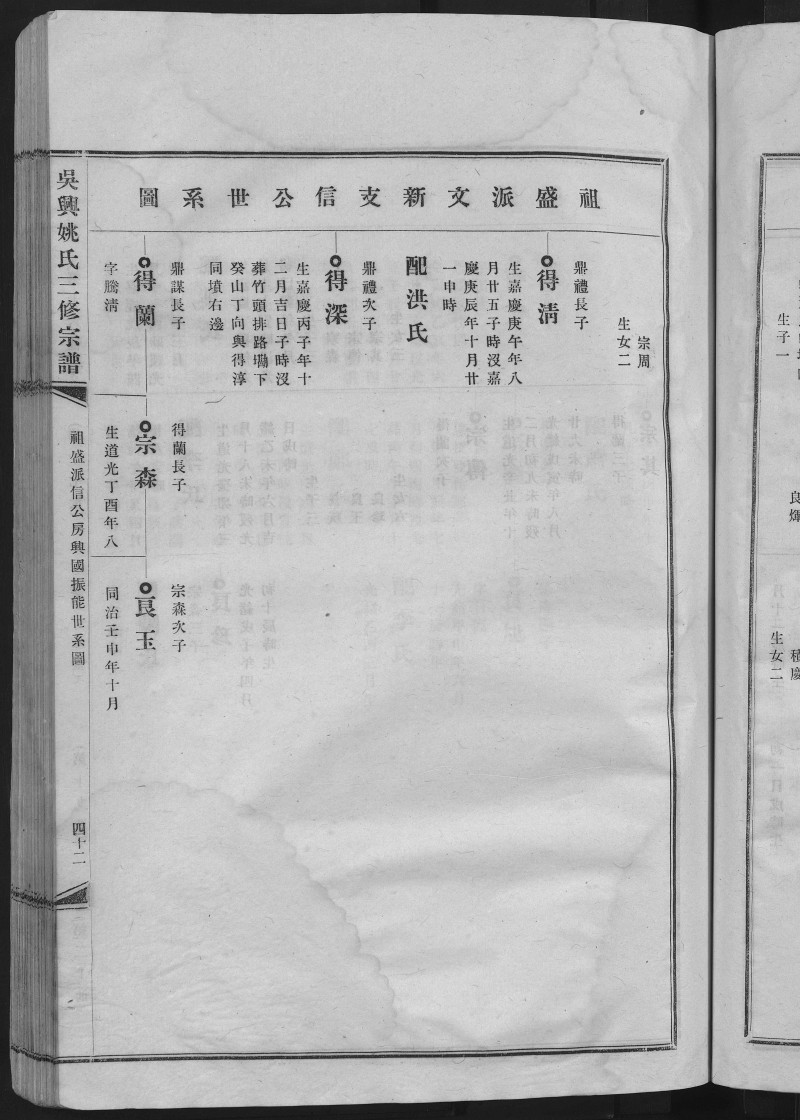 祖盛派文新支信公世系圖
宗周
生女二
鼎禮長子
得清
生嘉慶庚午年八
月廿五子時沒嘉
慶庚辰年十月廿
一申時
配洪氏
鼎禮次子
得深
生嘉慶丙子年十
二月吉日子時沒
葬竹頭排路塝下
癸山丁向與得淳
同墳右邊
鼎謀長子
得蘭
字騰淸
得蘭長子
宗森
生道光丁酉年八
宗森次子
良玉
同治壬申年十月
吳興姚氏三修宗譜
祖盛派信公房興國振能世系圖
四十二
生子一
良煇
種慶
生女二